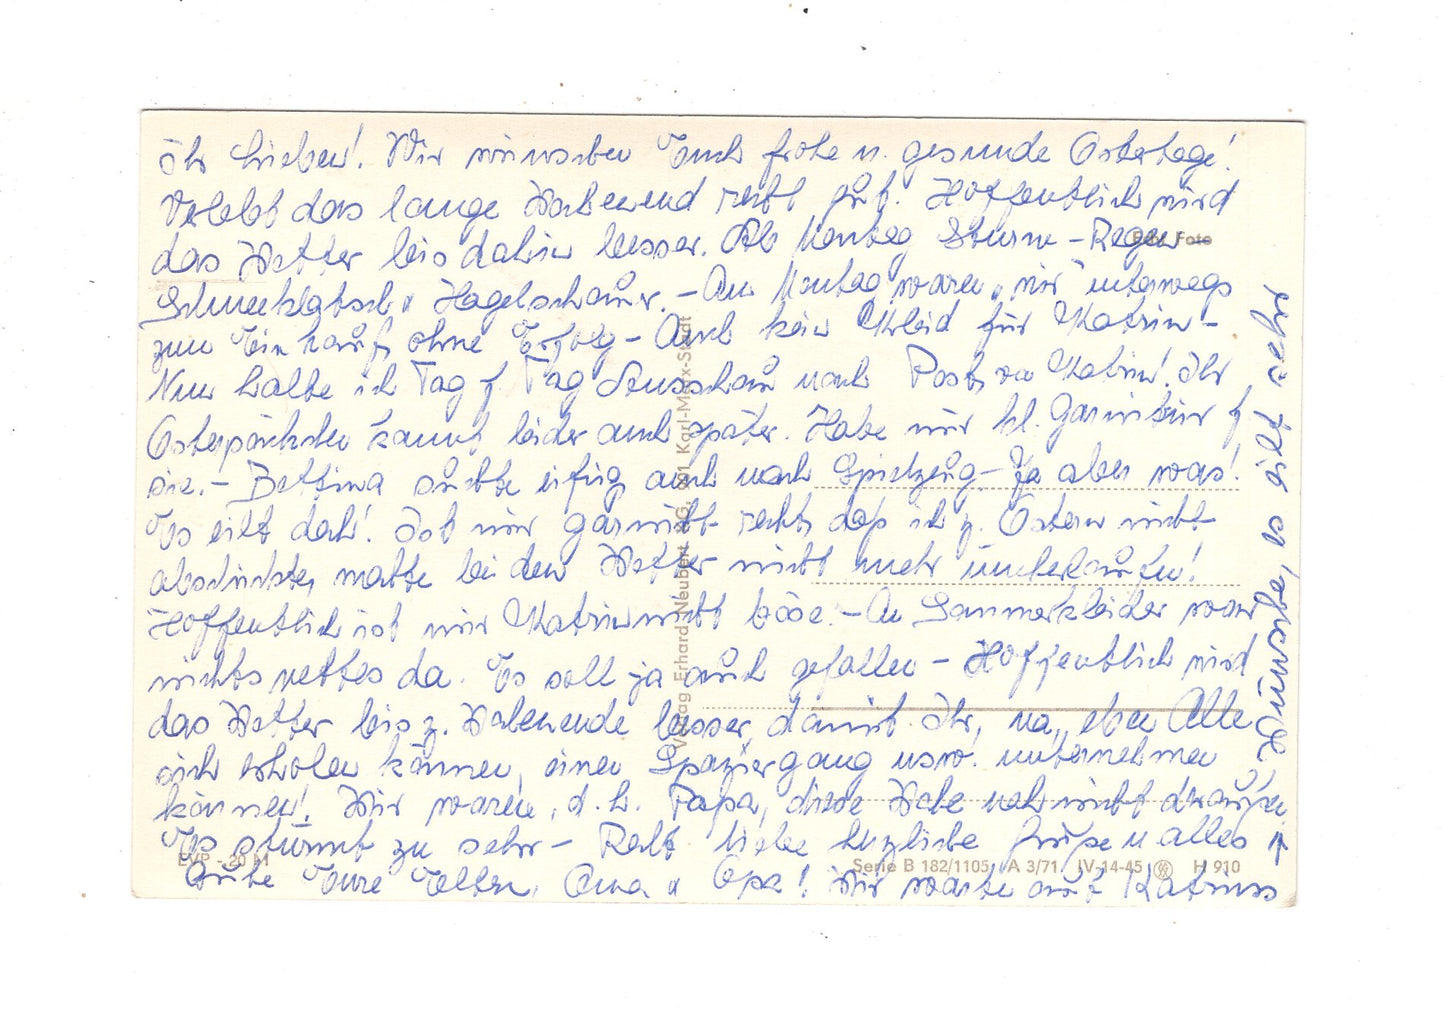 Ihr Lieben! Wir wünschen Euch frohe u. gesunde Ostertage!
Verlebt das lange Wochenend recht gut. Hoffentlich wird
das Wetter bis dahin besser. Ab Montag Sturm-Regen-
Schneeklatsch u Hagelschauer. - Am Montag waren wir unterwegs
zum Einkauf ohne Erfolg - Auch kein Kleid für Katrin -
Nun halte ich Tag f. Tag Ausschau nach Post von Katrin! Ihr
Osterpäckchen kommt leider auch später. Habe nur kl. Garnitur f
sie. - Bettina suchte eifrig auch nach Spielzeug - Ja aber was!
Es eilt doch! Ist mir garnicht recht, daß ich z. Ostern nicht
abschickte, mochte bei dem Wetter nicht mehr umherlaufen!
Hoffentlich ist mir Katrin nicht böse. - An Sommerkleider war
nichts nettes da. Es soll ja auch gefallen - Hoffentlich wird
das Wetter bis z. Wochenende besser, damit Ihr, na, eben Alle
sich erholen können, einen Spaziergang usw. unternehmen
können! Wir waren, d. h. Papa, diese Woche noch nicht draußen.
Es stürmt zu sehr - Recht liebe herzliche Grüße u alles
Gute Eure Eltern, Oma u Opa! Wir warten auf Katrins
Wünsche, es eilt sehr
Foto
Verlag Erhard Neubert KG, 901 Karl-Marx-Stadt
EVP - 20 M
Serie B 182/1105 A 3/71 IV-14-45 H 910